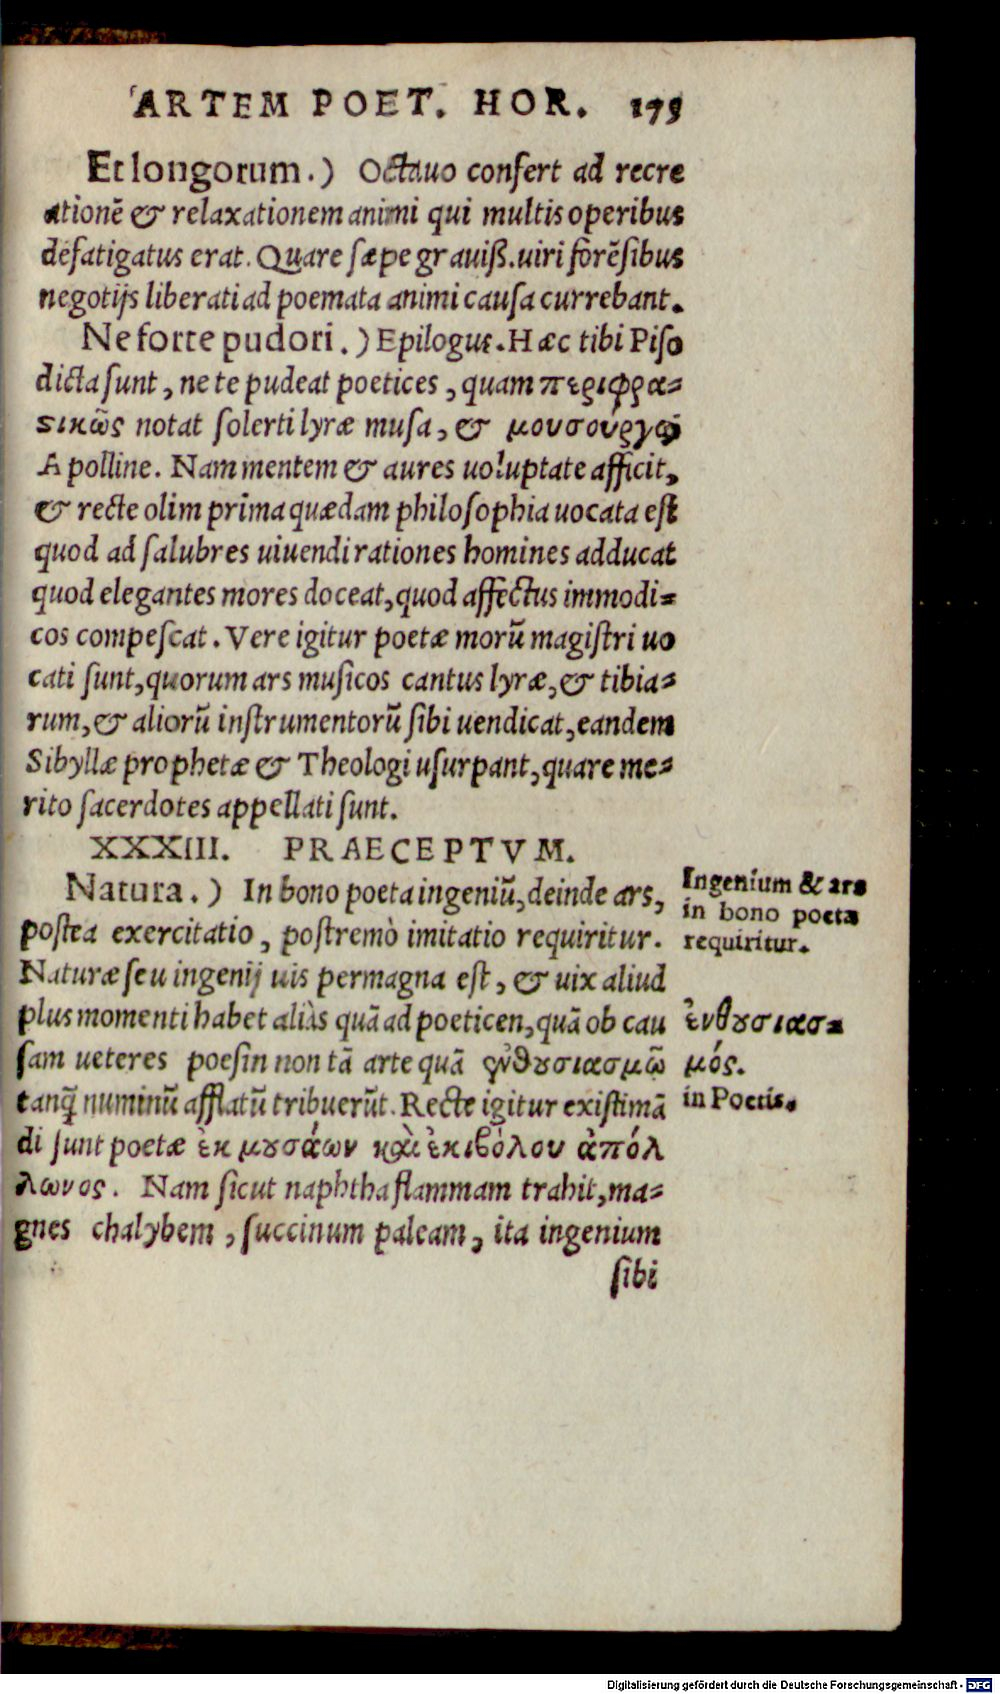 ARTEM POET. HOR. 179
Et longorum.) Octauo confert ad recre
ationē & relaxationem animi qui multis operibus
defatigatus erat. Quare sæpe grauiß. uiri forēsibus
negotijs liberati ad poemata animi causa currebant.
Ne forte pudori.) Epilogus. Hæc tibi Piso
dicta sunt, ne te pudeat poetices, quam περιφρα-
ςικῶς notat solerti lyræ musa, & μουσούργῳ
Apolline. Nam mentem & aures uoluptate afficit,
& recte olim prima quædam philosophia uocata est
quod ad salubres uiuendi rationes homines adducat
quod elegantes mores doceat, quod affectus immodi-
cos compescat. Vere igitur poetæ morū magistri uo
cati sunt, quorum ars musicos cantus lyræ, & tibia-
rum, & aliorū instrumentorū sibi uendicat, eandem
Sibyllæ prophetæ & Theologi usurpant, quare me-
rito sacerdotes appellati sunt.
XXXIII. PRAECEPTVM.
Natura.) In bono poeta ingeniū, deinde ars,
postea exercitatio, postremò imitatio requiritur.
Naturæ seu ingenij uis permagna est, & uix aliud
plus momenti habet aliàs quā ad poeticen, quā ob cau
sam ueteres poesin non tā arte quā ἐνθουσιασμῶ
tanq̃ numinū afflatū tribuerūt. Recte igitur existimā
di sunt poetæ ἐκ μουσάων καὶ ἑκιβόλου ἀπόλ
λωνος. Nam sicut naphtha flammam trahit, ma-
gnes chalybem, succinum paleam, ita ingenium
sibi
Ingenium & ars
in bono poeta
requiritur.
ἐνθουσιασ-
μός.
in Poetis.
Digitalisierung gefördert durch die Deutsche Forschungsgemeinschaft - DFG